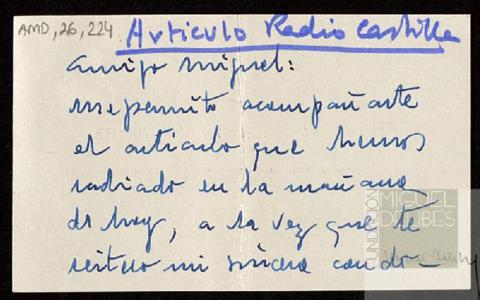 AMD,26,224
Articulo Radio Castilla
Amigo Miguel:
me permito acompañarte
el articulo que hemos
radiado en la mañana
de hoy, a la vez que te
reitero mi sincera condo-
FUNDACIÓN
MIGUEL
DELIBES